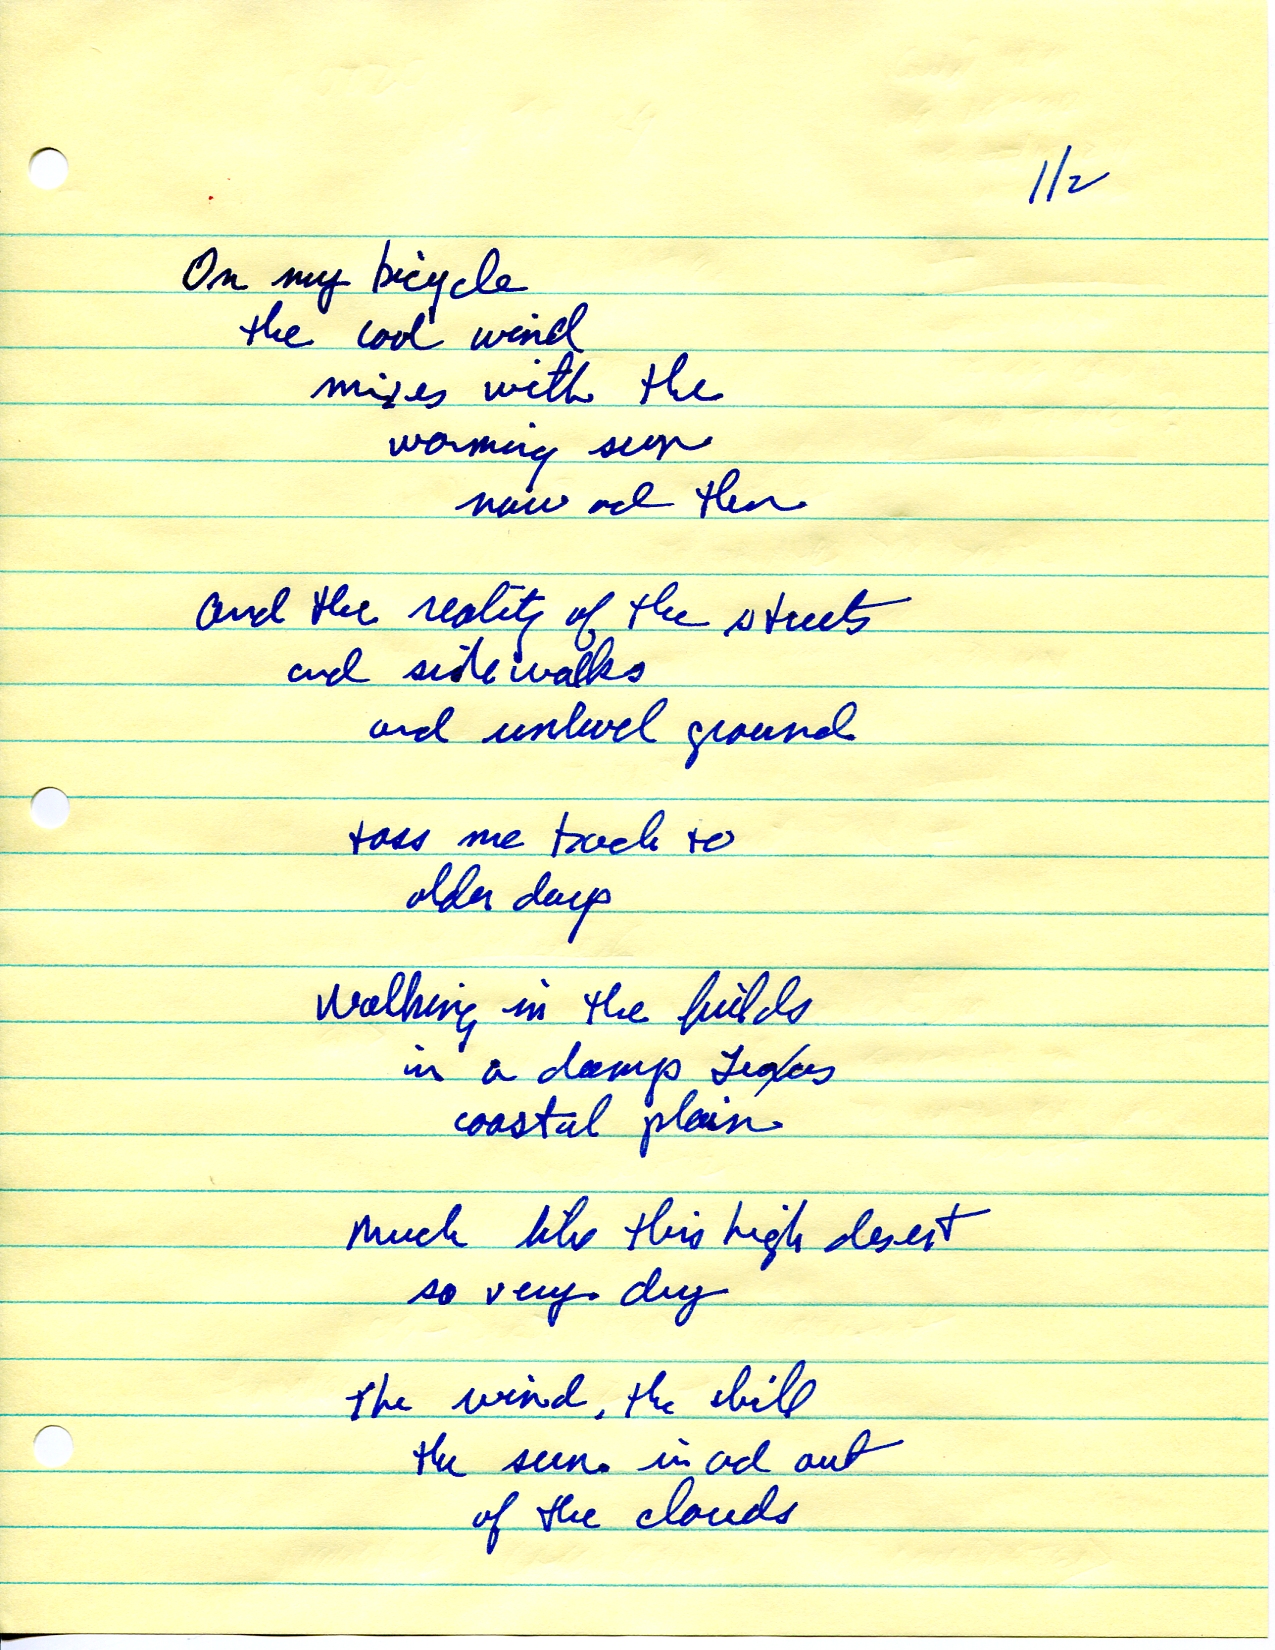 1/2
On my bicycle
the cool wind
mixes with the
warming sun
now ad then
and the reality of the streets
and sidewalks
and unlevel ground
toss me back to
older days
Walking in the fields
in a damp Texas
coastal plain
Much like this high desert
so very dry
The wind, the chill
the sun in ad out
of the clouds